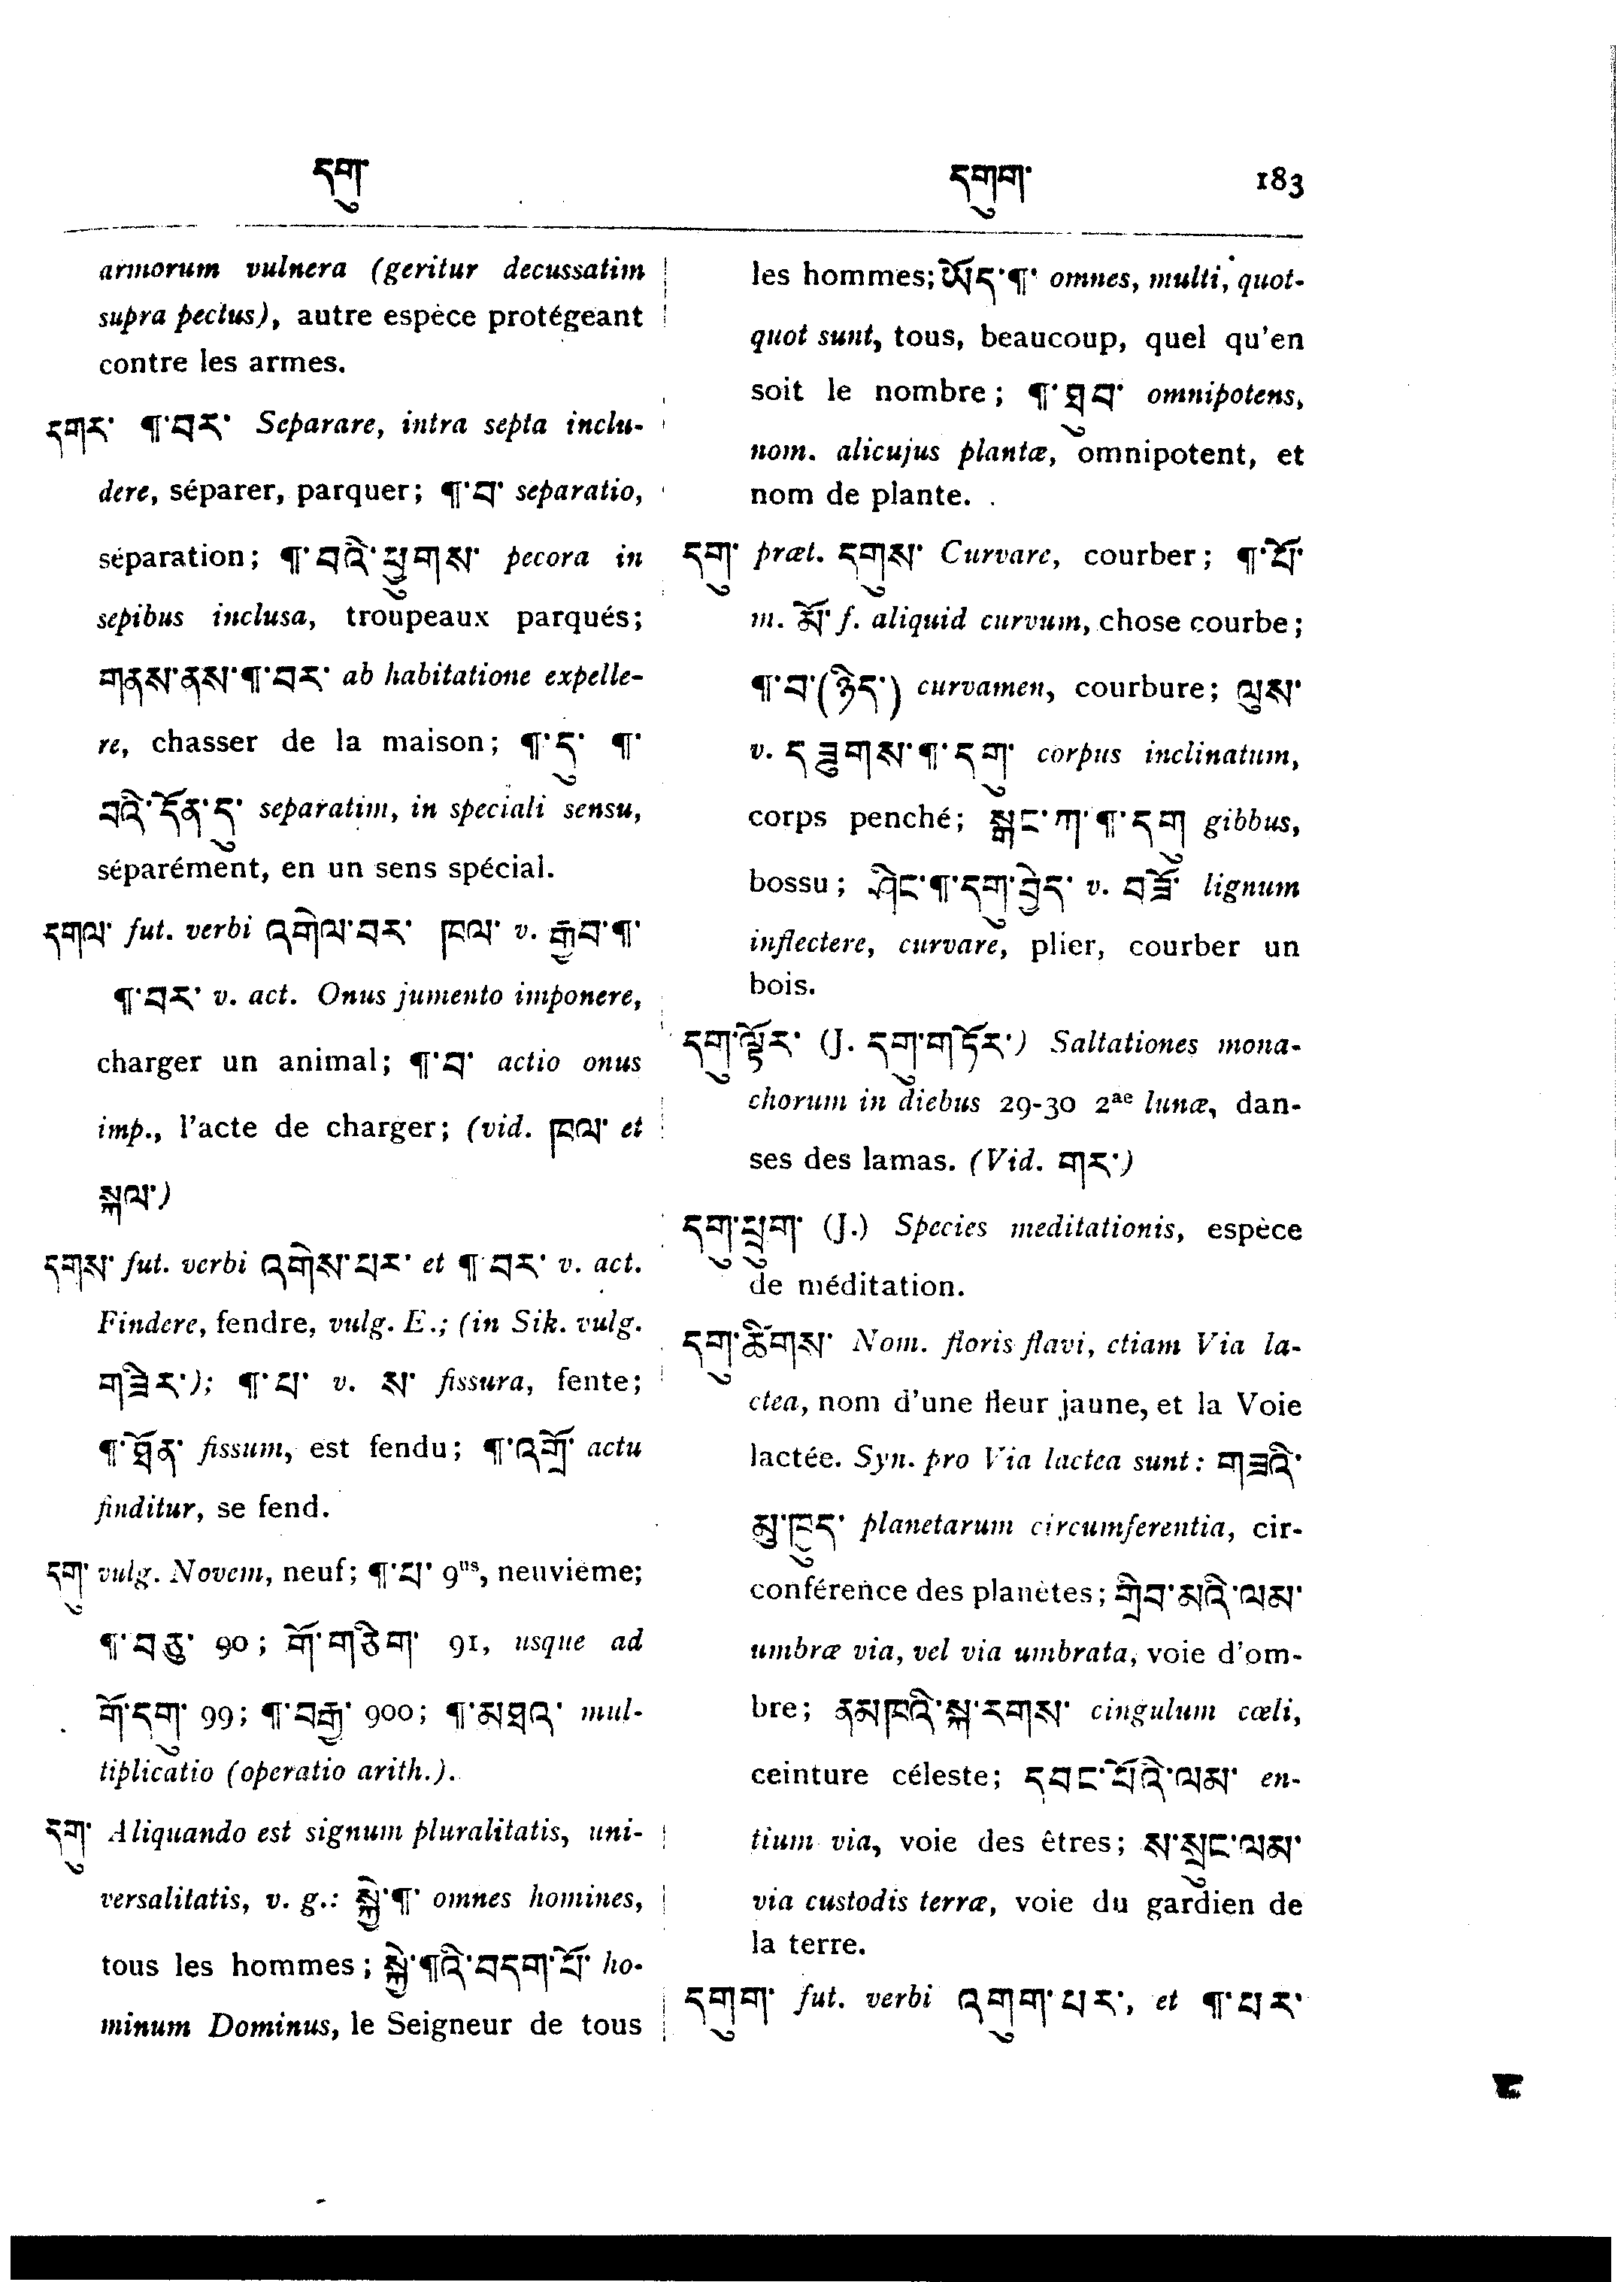 དགུ་
དགུག་ 183
armorum vulnera (geritur decussatim
supra pectus), autre espèce protégeant
contre les armes.
དགར་ ¶་བར་ Separare, intra septa inclu-
dere, séparer, parquer; ¶་བ་ separatio,
séparation; ¶་བའི་ཕྱུགས་ pecora in
sepibus inclusa, troupeaux parqués;
གནས་ནས་¶་བར་ ab habitatione expelle-
re, chasser de la maison; ¶་དུ་ ¶་
བའི་དོན་དུ་ separatim, in speciali sensu,
séparément, en un sens spécial.
དགལ་ fut. verbi འགེལ་བར་ ཁལ་ v. རྒྱབ་¶་
¶་བར་ v. act. Onus jumento imponere,
charger un animal; ¶་བ་ actio onus
imp., l'acte de charger; (vid. ཁལ་ et
སྐལ་)
དགས་ fut. verbi འགེས་པར་ et ¶་བར་ v. act.
Findere, fendre, vulg. E.; (in Sik. vulg.
གཟེར་); ¶་པ་ v. ས་ fissura, fente;
¶་ཐོན་ fissum, est fendu; ¶་འགྲོ་ actu
finditur, se fend.
དགུ་ vulg. Novem, neuf; ¶་པ་ 9ns, neuvième;
¶་བཅུ་ 90; གོ་གཅིག་ 91, usque ad
གོ་དགུ་ 99; ¶་བརྒྱ་ 900; ¶་མཐའ་ mul-
tiplicatio (operatio arith.).
དགུ་ Aliquando est signum pluralitatis, uni-
versalitatis, v. g.: སྐྱེ་¶་ omnes homines,
tous les hommes; སྐྱེ་¶འི་བདག་པོ་ ho-
minum Dominus, le Seigneur de tous
les hommes; ཡོད་¶་ omnes, multi, quot-
quot sunt, tous, beaucoup, quel qu'en
soit le nombre; ¶་ཐུབ་ omnipotens,
nom. alicujus plantæ, omnipotent, et
nom de plante.
དགུ་ præt. དགུས་ Curvare, courber; ¶་པོ་
m. མོ་ f. aliquid curvum, chose courbe;
¶་བ་(ཉིད་) curvamen, courbure; ལུས་
v. ད ཟུགས་¶་དགུ་ corpus inclinatum,
corps penché; སྒང་ཀ་¶་དགུ gibbus,
bossu; ཤིང་¶་དགུ་བྱེད་ v. བཟོ་ lignum
inflectere, curvare, plier, courber un
bois.
དགུ་ལྟོར་ (J. དགུ་གཏོར་) Saltationes mona-
chorum in diebus 29-30 2ae lunæ, dan-
ses des lamas. (Vid. གར་)
དགུ་ཕྲུག་ (J.) Species meditationis, espèce
de méditation.
དགུ་ཚིགས་ Nom. floris flavi, etiam Via la-
ctea, nom d'une fleur jaune, et la Voie
lactée. Syn. pro Via lactea sunt: གཟའི་
མུ་ཁྱུད་ planetarum circumferentia, cir-
conférence des planètes; གྲིབ་མའི་ལམ་
umbræ via, vel via umbrata, voie d'om-
bre; ནམ་ཁའི་སྐ་རགས་ cingulum cœli,
ceinture céleste; དབང་པོའི་ལམ་ en-
tium via, voie des êtres; ས་སྲུང་ལམ་
via custodis terræ, voie du gardien de
la terre.
དགུག་ fut. verbi འགུག་པར་, et ¶་པར་